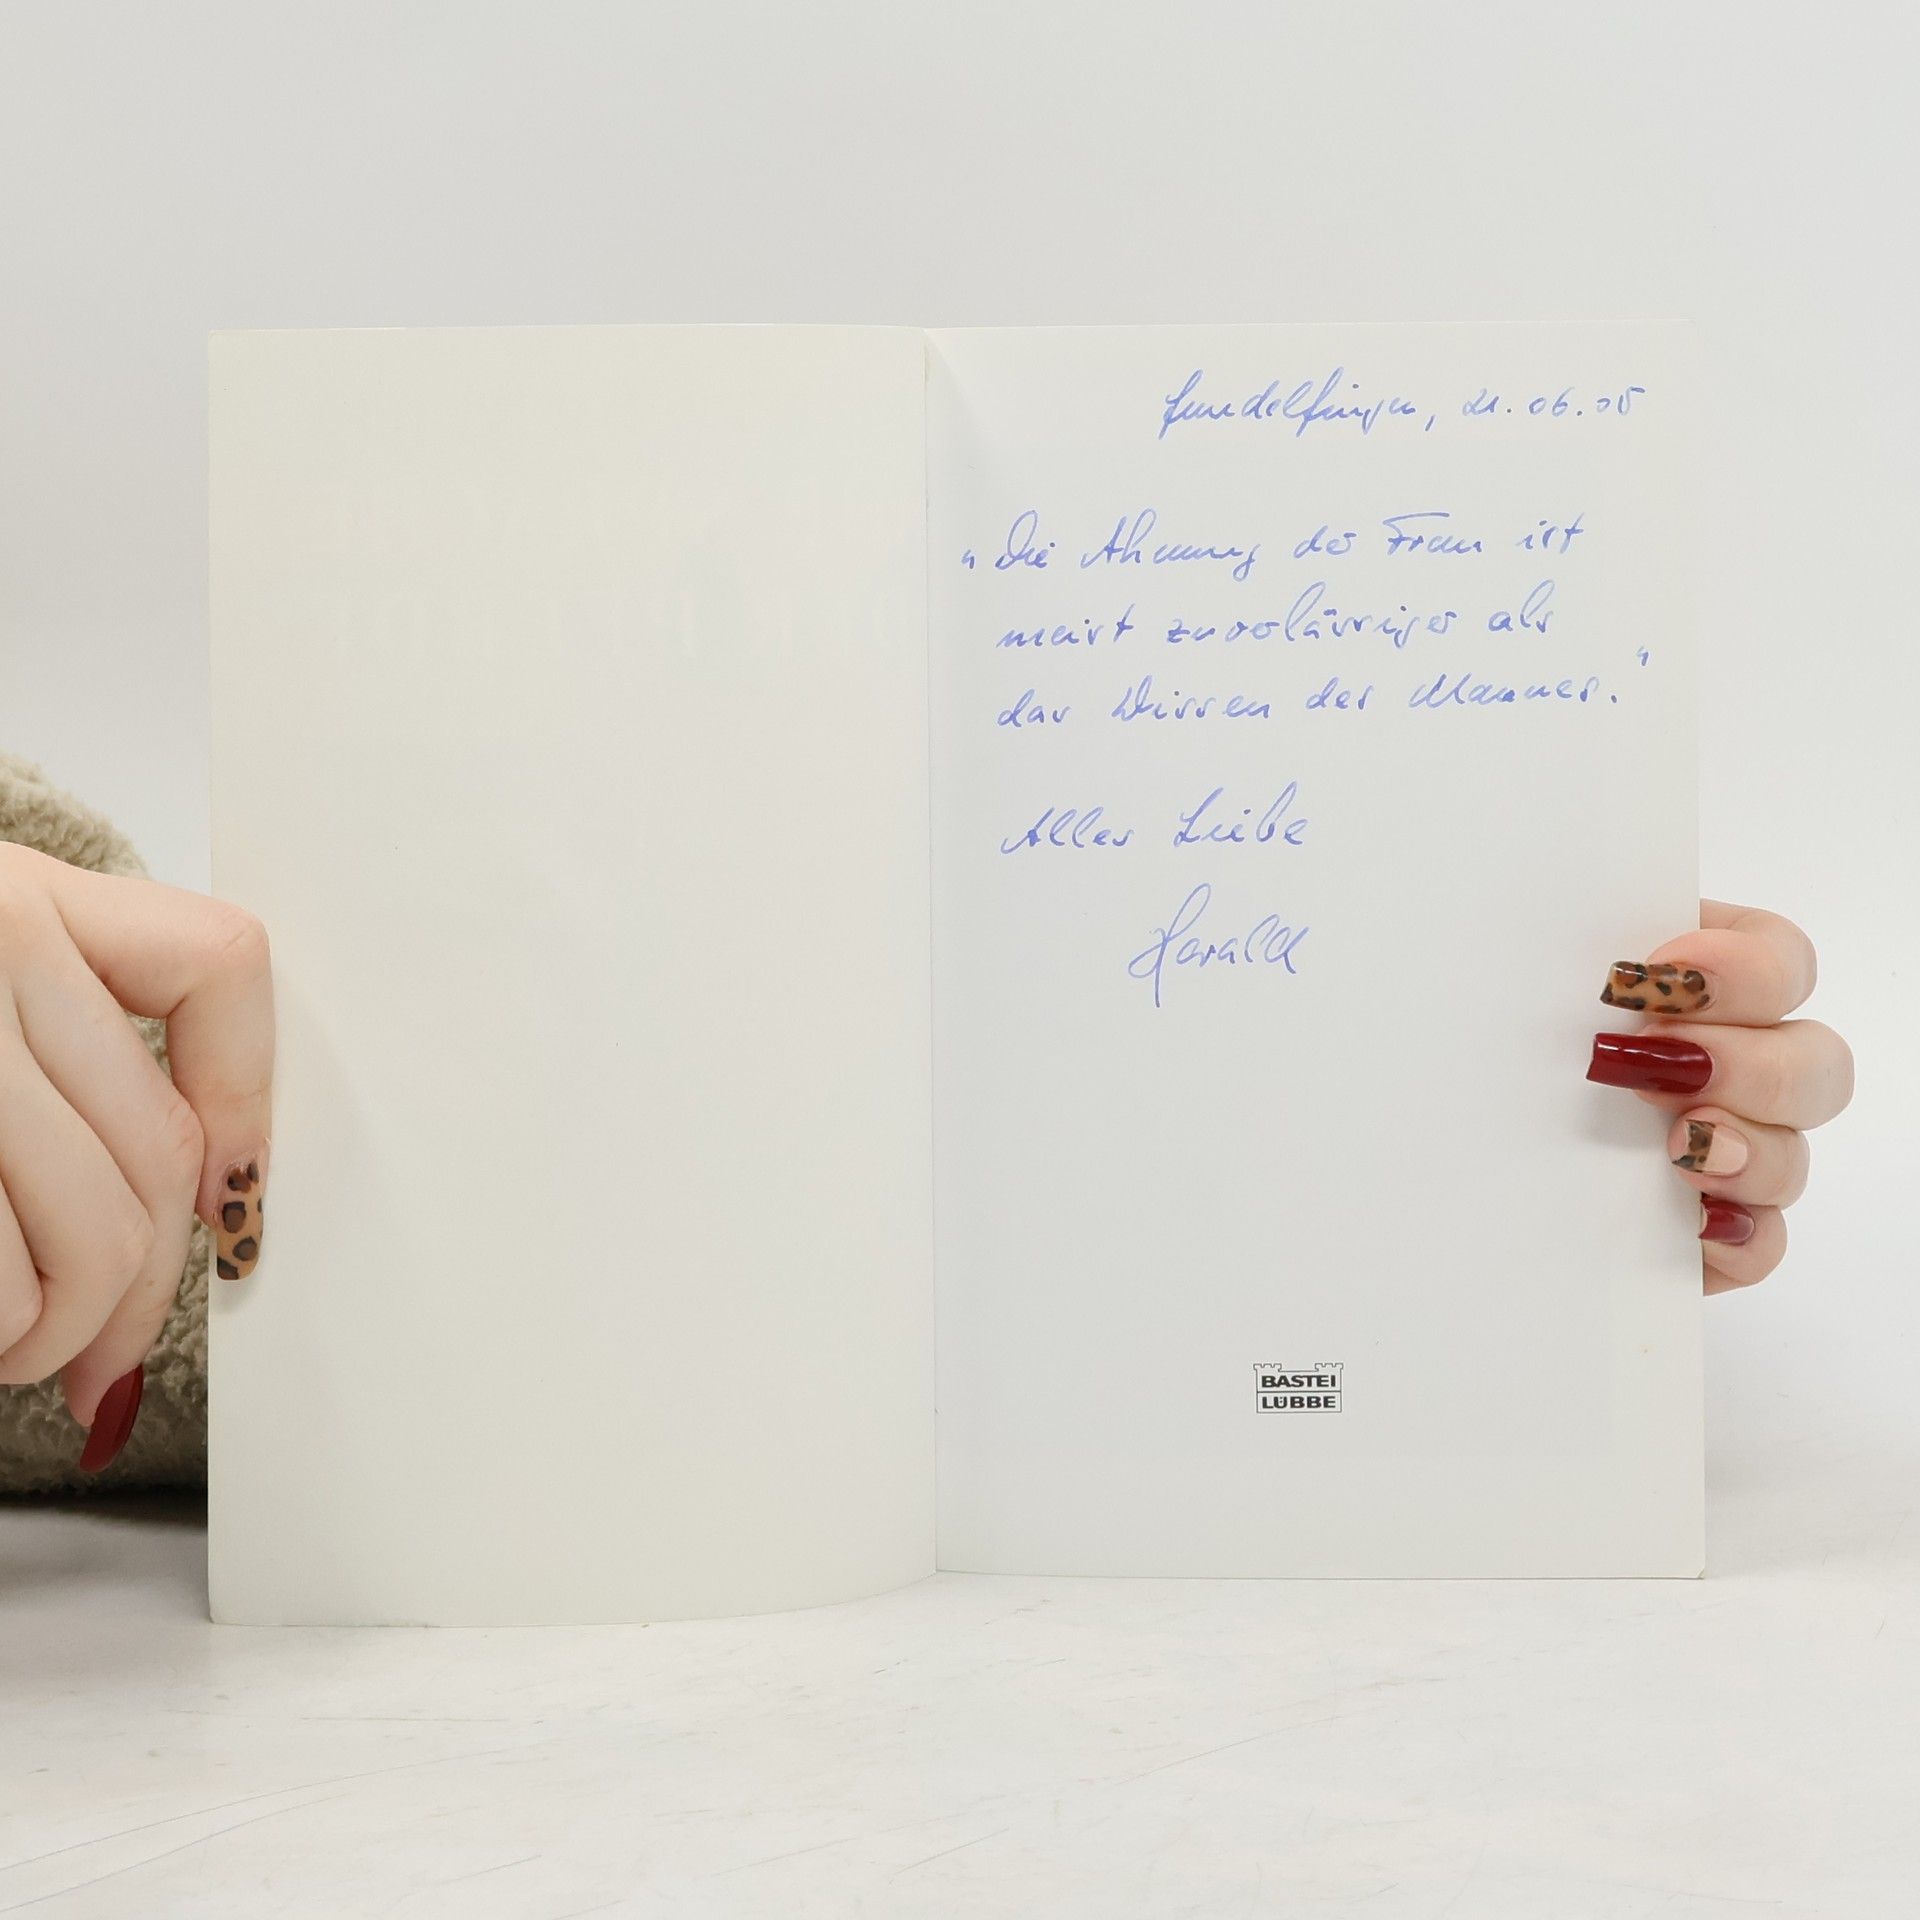 Gundelfingen, 21.06.05
"Die Ahnung der Frau ist
meist zuverlässiger als
das Wissen des Mannes."
Alles Liebe
Harald
BASTEI
LÜBBE